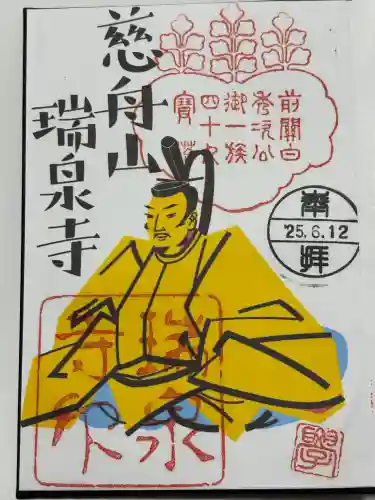 前關白
秀次公
御一族
四十九
寶塔
慈舟山
瑞泉寺
奉
'25.6.12
拝
瑞泉
寺印